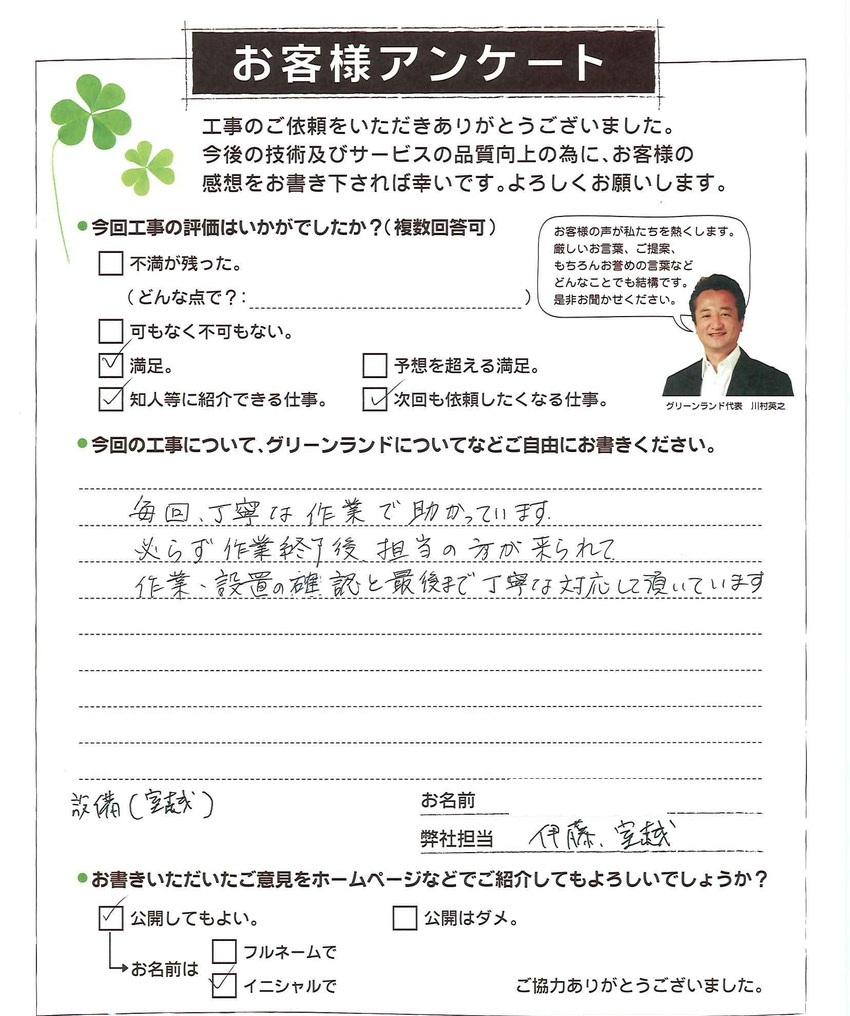 お客様アンケート
工事のご依頼をいただきありがとうございました。
今後の技術及びサービスの品質向上の為に、お客様の
感想をお書き下されば幸いです。よろしくお願いします。
●今回工事の評価はいかがでしたか？（複数回答可）
不満が残った。
（どんな点で？： ）
可もなく不可もない。
満足。
予想を超える満足。
知人等に紹介できる仕事。
次回も依頼したくなる仕事。
お客様の声が私たちを熱くします。
厳しいお言葉、ご提案、
もちろんお誉めの言葉など
どんなことでも結構です。
是非お聞かせください。
グリーンランド代表 川村英之
●今回の工事について、グリーンランドについてなどご自由にお書きください。
毎回、丁寧な作業で助かっています。
必らず作業終了後担当の方が来られて
作業・設置の確認と最後まで丁寧な対応して頂いています
設備（室越）
お名前
弊社担当 伊藤、室越
●お書きいただいたご意見をホームページなどでご紹介してもよろしいでしょうか？
公開してもよい。
公開はダメ。
お名前は
フルネームで
イニシャルで
ご協力ありがとうございました。